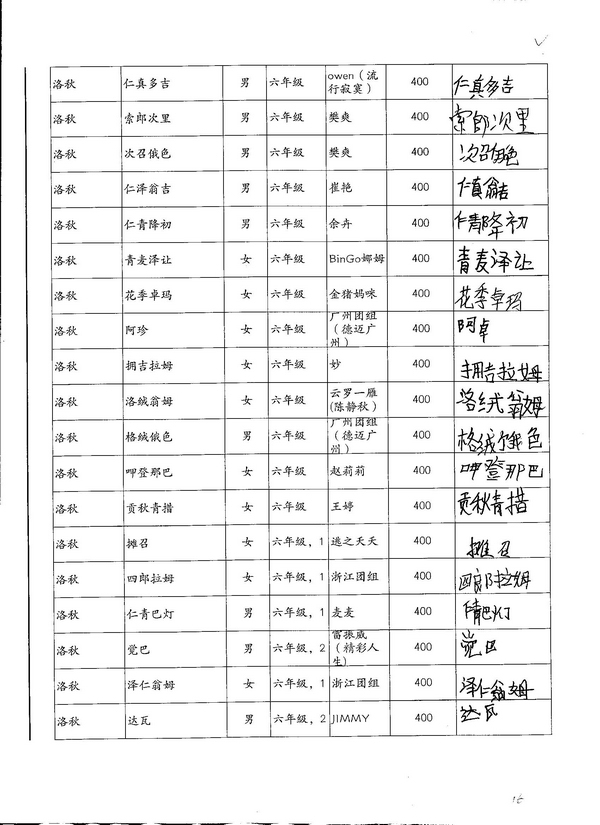 洛秋 仁真多吉 男 六年级 owen（流行寂寞） 400 仁真多吉
洛秋 索郎次里 男 六年级 樊爽 400 索郎次里
洛秋 次召俄色 男 六年级 樊爽 400 次召俄色
洛秋 仁泽翁吉 男 六年级 崔艳 400 仁真翁吉
洛秋 仁青降初 男 六年级 余卉 400 仁青降初
洛秋 青麦泽让 女 六年级 BinGo娜姆 400 青麦泽让
洛秋 花季卓玛 女 六年级 金猪妈咪 400 花季卓玛
洛秋 阿珍 女 六年级 广州团组（德迈广州） 400 阿卓
洛秋 拥吉拉姆 女 六年级 妙 400 拥吉拉姆
洛秋 洛绒翁姆 女 六年级 云罗一雁(陈静秋） 400 洛绒翁姆
洛秋 格绒俄色 男 六年级 广州团组（德迈广州） 400 格绒俄色
洛秋 呷登那巴 女 六年级 赵莉莉 400 呷登那巴
洛秋 贡秋青措 女 六年级 王婷 400 贡秋青措
洛秋 摊召 女 六年级，1 逃之夭夭 400 摊召
洛秋 四郎拉姆 女 六年级，1 浙江团组 400 四郎拉姆
洛秋 仁青巴灯 男 六年级，1 麦麦 400 仁青巴灯
洛秋 觉巴 男 六年级，2 雷振威（精彩人生） 400 觉巴
洛秋 泽仁翁姆 女 六年级，1 浙江团组 400 泽仁翁姆
洛秋 达瓦 男 六年级，2 JIMMY 400 达瓦
16